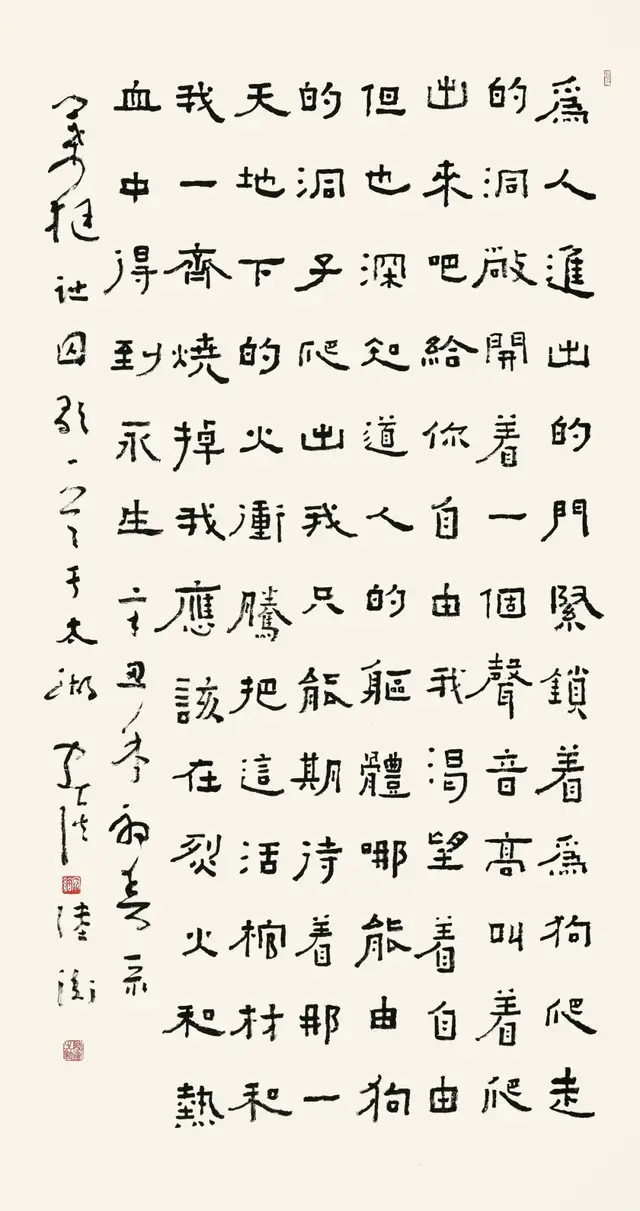 爲人進出的門緊鎖着爲狗爬走
的洞敞開着一個聲音高叫着爬
出來吧給你自由我渴望着自由
但也深知道人的軀體哪能由狗
的洞子爬出我只能期待着那一
天地下的火衝騰把這活棺材和
我一齊燒掉我應該在烈火和熱
血中得到永生 辛丑初春录
葉挺詩囚歌一首于太湖 陸衡